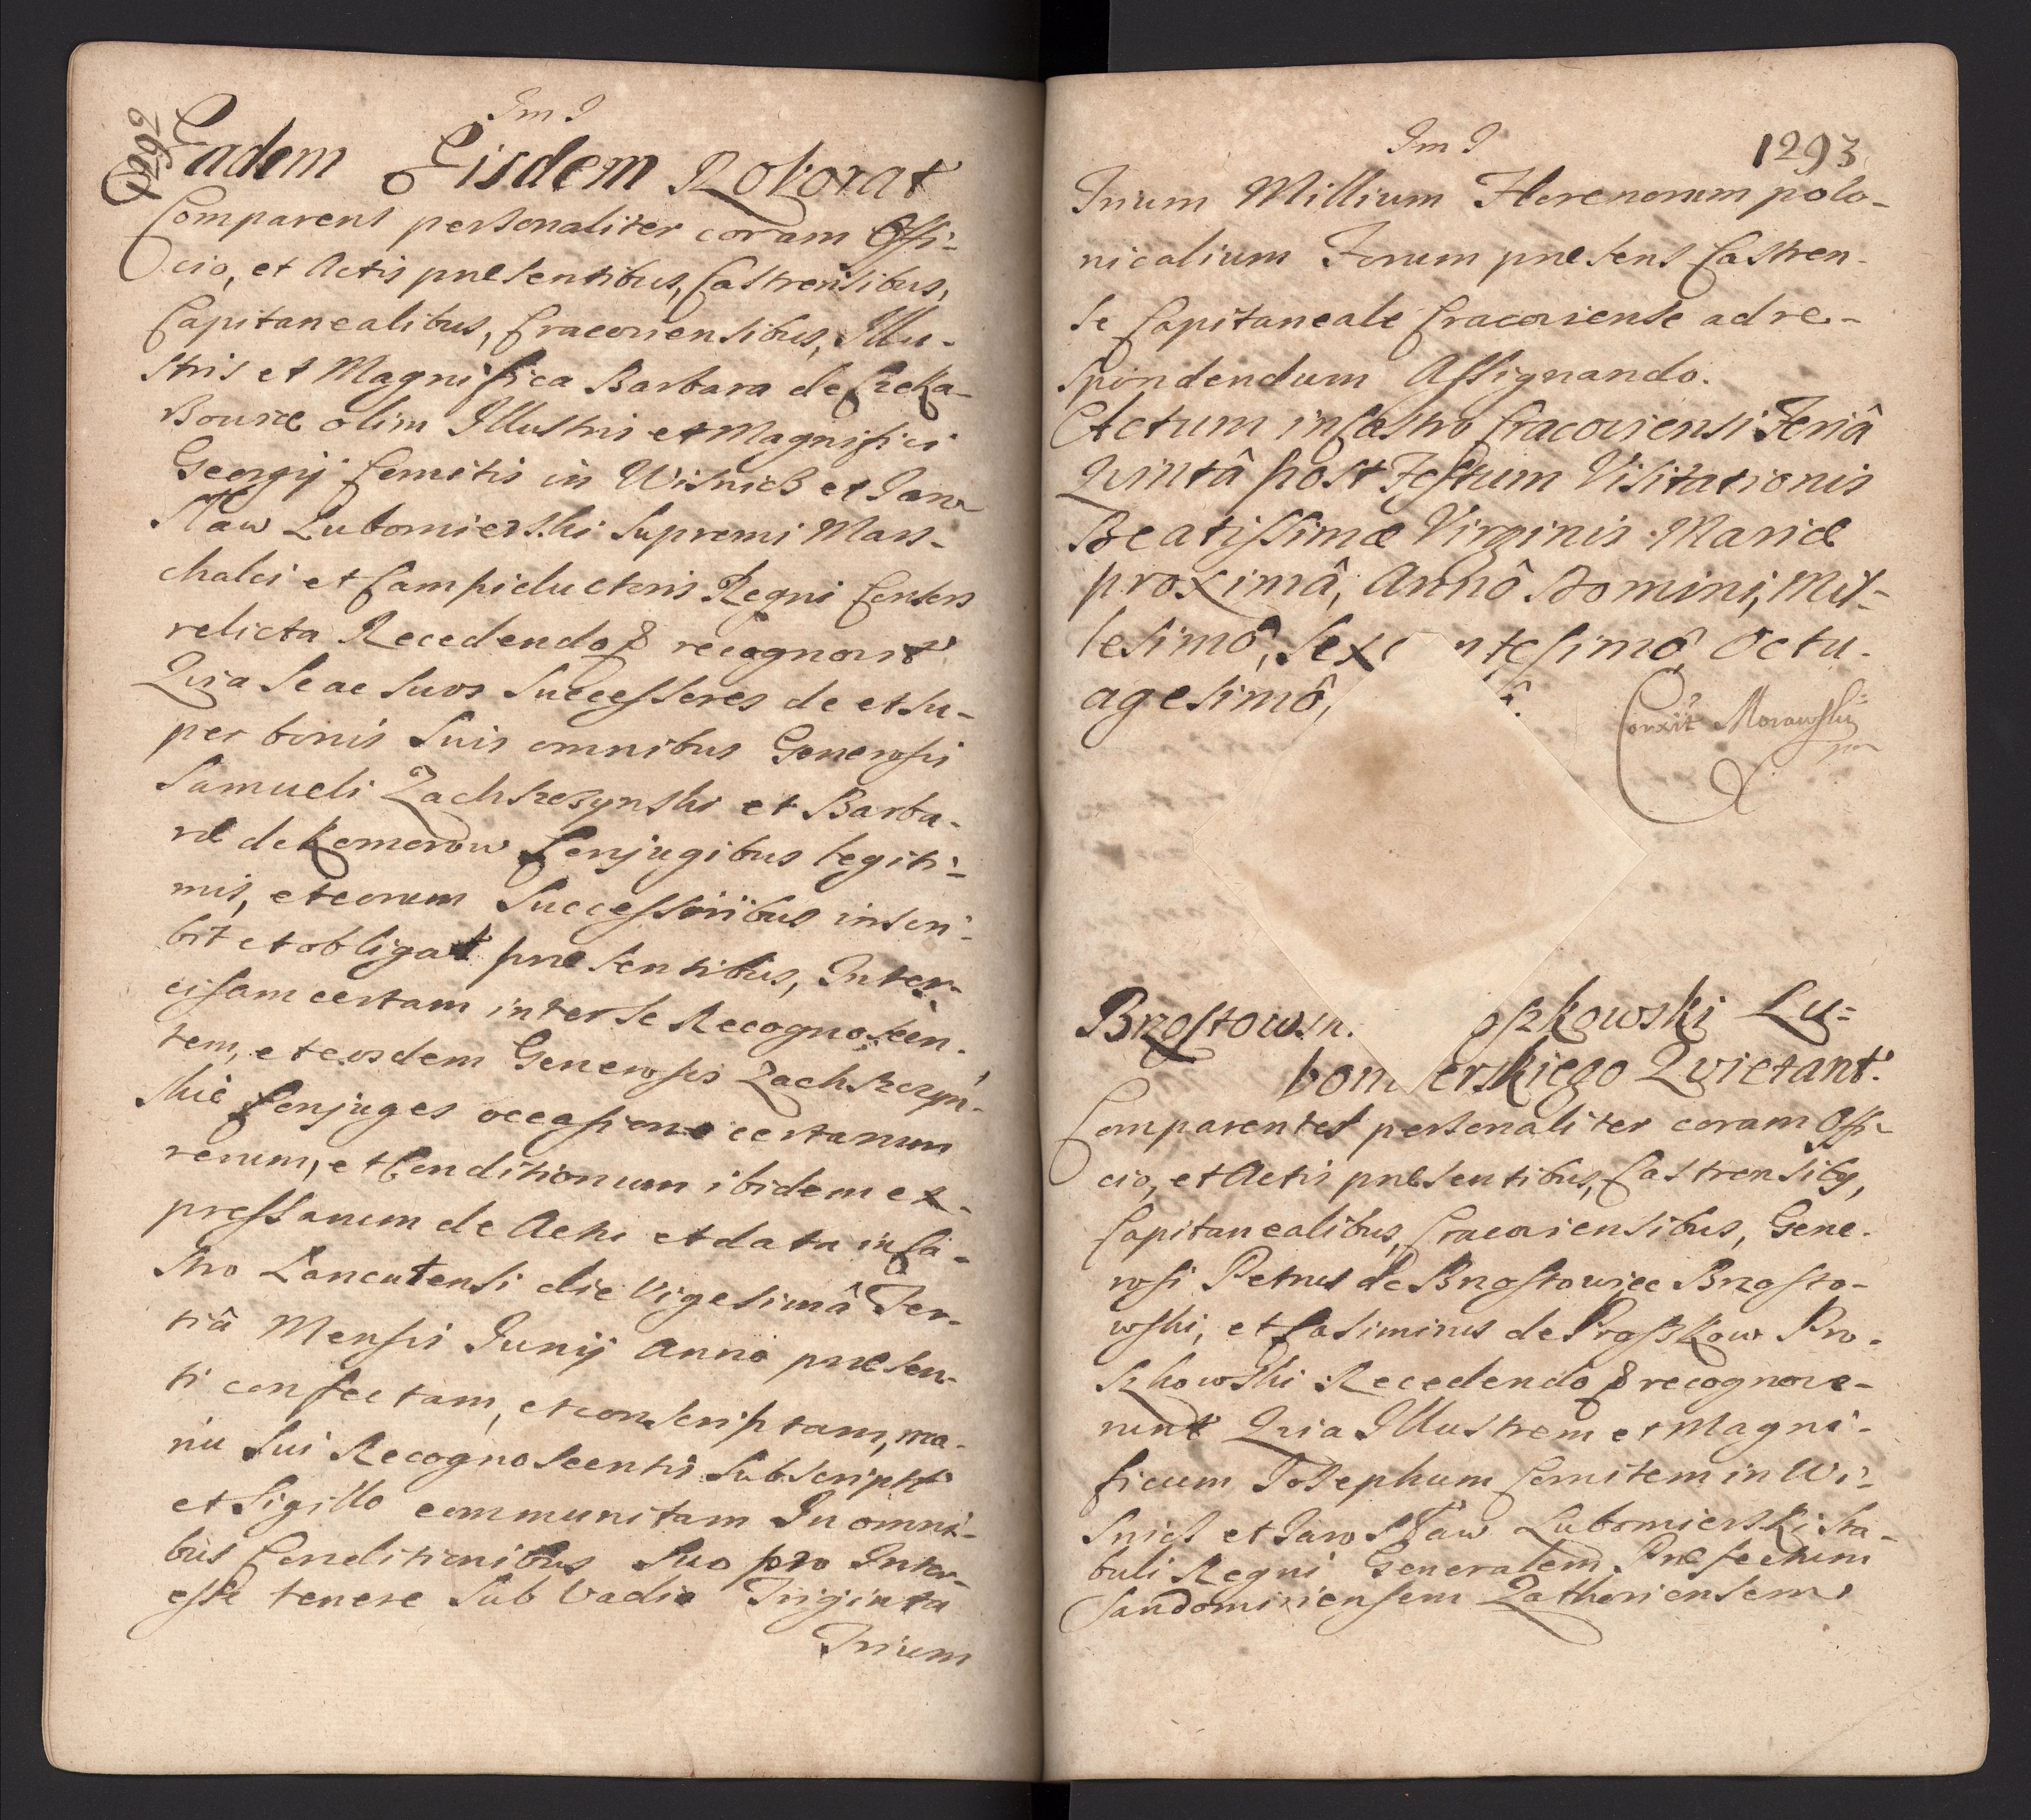 Im I
Eadem Eisdem Roborat
Comparens personaliter coram Offi-
cio, et Actis præsentibus, Castrensibus,
Capitanealibus, Cracoviensibus, Illu-
stris et Magnifica Barbara de
olim Illustris et Magnifici
Georgij Comitis in Wisnicz et Jaro
sław Lubomierski Supremi Mars-
chalci et Campiductoris Regni Consors
relicta Recedendo recognovit
Quia se ac suos Successores de et su-
per bonis suis omnibus Generosis
Samueli Zachszczynski et Barba-
ræ de Komorow Conjugibus legiti-
mis, et eorum Successoribus inscri-
bit et obligat præsentibus, Inter-
cisam certam inter se Recognoscen-
tem, et eosdem Generosos Zachszczyn-
skie Conjuges occasione certarum
rerum, et Conditionum ibidem ex-
pressarum de Actu et data in Ca-
stro Lancutensi die Vigesimâ Ter-
tiâ Mensis Junij Anno præsen-
ti confectam, et conscriptam, ma-
nu sui Recognoscentis subscripta
et Sigillo communitam In omni-
bus Conditionibus suo pro Inter-
esse tenere sub vadio Triginta
Trium
Im I 1293
Trium Millium Florenorum polo-
nicalium Forum præsens Castren-
se Capitaneale Cracoviense ad re-
spondendum Assignando.
Actum in Castro Cracoviensi Feriâ
Quintâ post Festum Visitationis
Beatissimæ Virginis Mariæ
proximâ, Annô Domini, Mil-
lesimô, Sex ntesimô Octu-
agesimô,
Morawski
Brzostows oszkowski Lu=
bom erskiego Quietant.
Comparentes personaliter coram Offi-
cio, et Actis præsentibus, Castrensibq,
Capitanealibus, Cracoviensibus, Gene-
rosi Petrus de Brzostowiec Brzosto-
wski, et Casimirus de Proszkow Pro-
szkowski Recedendo recognove-
runt Quia Illustrem et Magni-
ficum Josephum Comitem in Wi-
snicz et Jarosław Lubomierski Sta-
buli Regni Generalem Præfectum
Sandomiriensem Zathoriensem